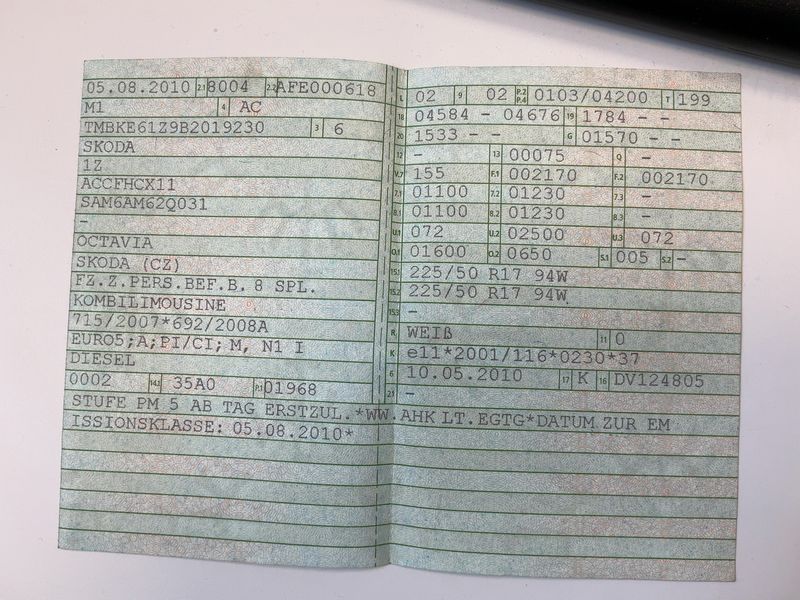 05.08.2010 2.1 8004 2.2 AFE000618
M1 4 AC
TMBKE61Z9B2019230 3 6
SKODA
1Z
ACCFHCX11
SAM6AM62Q031
-
OCTAVIA
SKODA (CZ)
FZ.Z.PERS.BEF.B. 8 SPL.
KOMBILIMOUSINE
715/2007*692/2008A
EURO5;A;PI/CI; M, N1 I
DIESEL
0002 14.1 35A0 P.1 01968
L 02 9 02 P.2 P.4 0103/04200 T 199
18 04584 - 04676 19 1784 - -
20 1533 - - G 01570 - -
12 - 13 00075 Q -
V.7 155 F.1 002170 F.2 002170
7.1 01100 7.2 01230 7.3 -
8.1 01100 8.2 01230 8.3 -
U.1 072 U.2 02500 U.3 072
O.1 01600 O.2 0650 S.1 005 S.2 -
15.1 225/50 R17 94W
15.2 225/50 R17 94W
15.3 -
R WEIß 11 0
K e11*2001/116*0230*37
6 10.05.2010 17 K 16 DV124805
21 -
STUFE PM 5 AB TAG ERSTZUL.*WW.AHK LT.EGTG*DATUM ZUR EM
ISSIONSKLASSE: 05.08.2010*